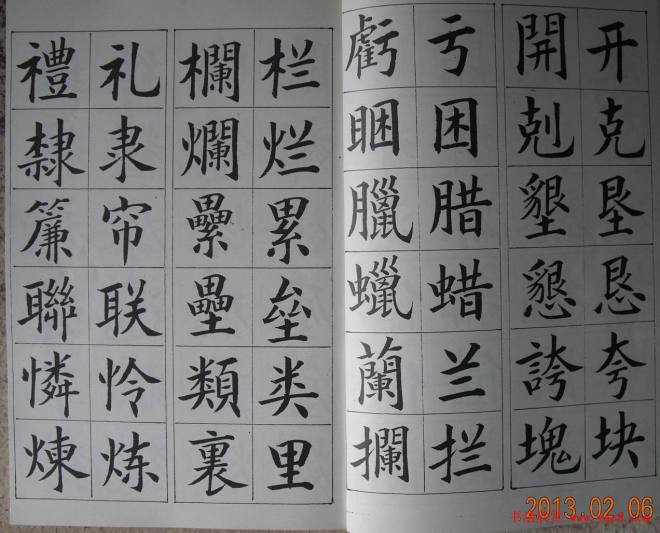 開开
剋克
墾垦
懇恳
誇夸
塊块
虧亏
睏困
臘腊
蠟蜡
蘭兰
攔拦
欄栏
爛烂
纍累
壘垒
類类
裏里
禮礼
隸隶
簾帘
聯联
憐怜
煉炼
2013.02.06